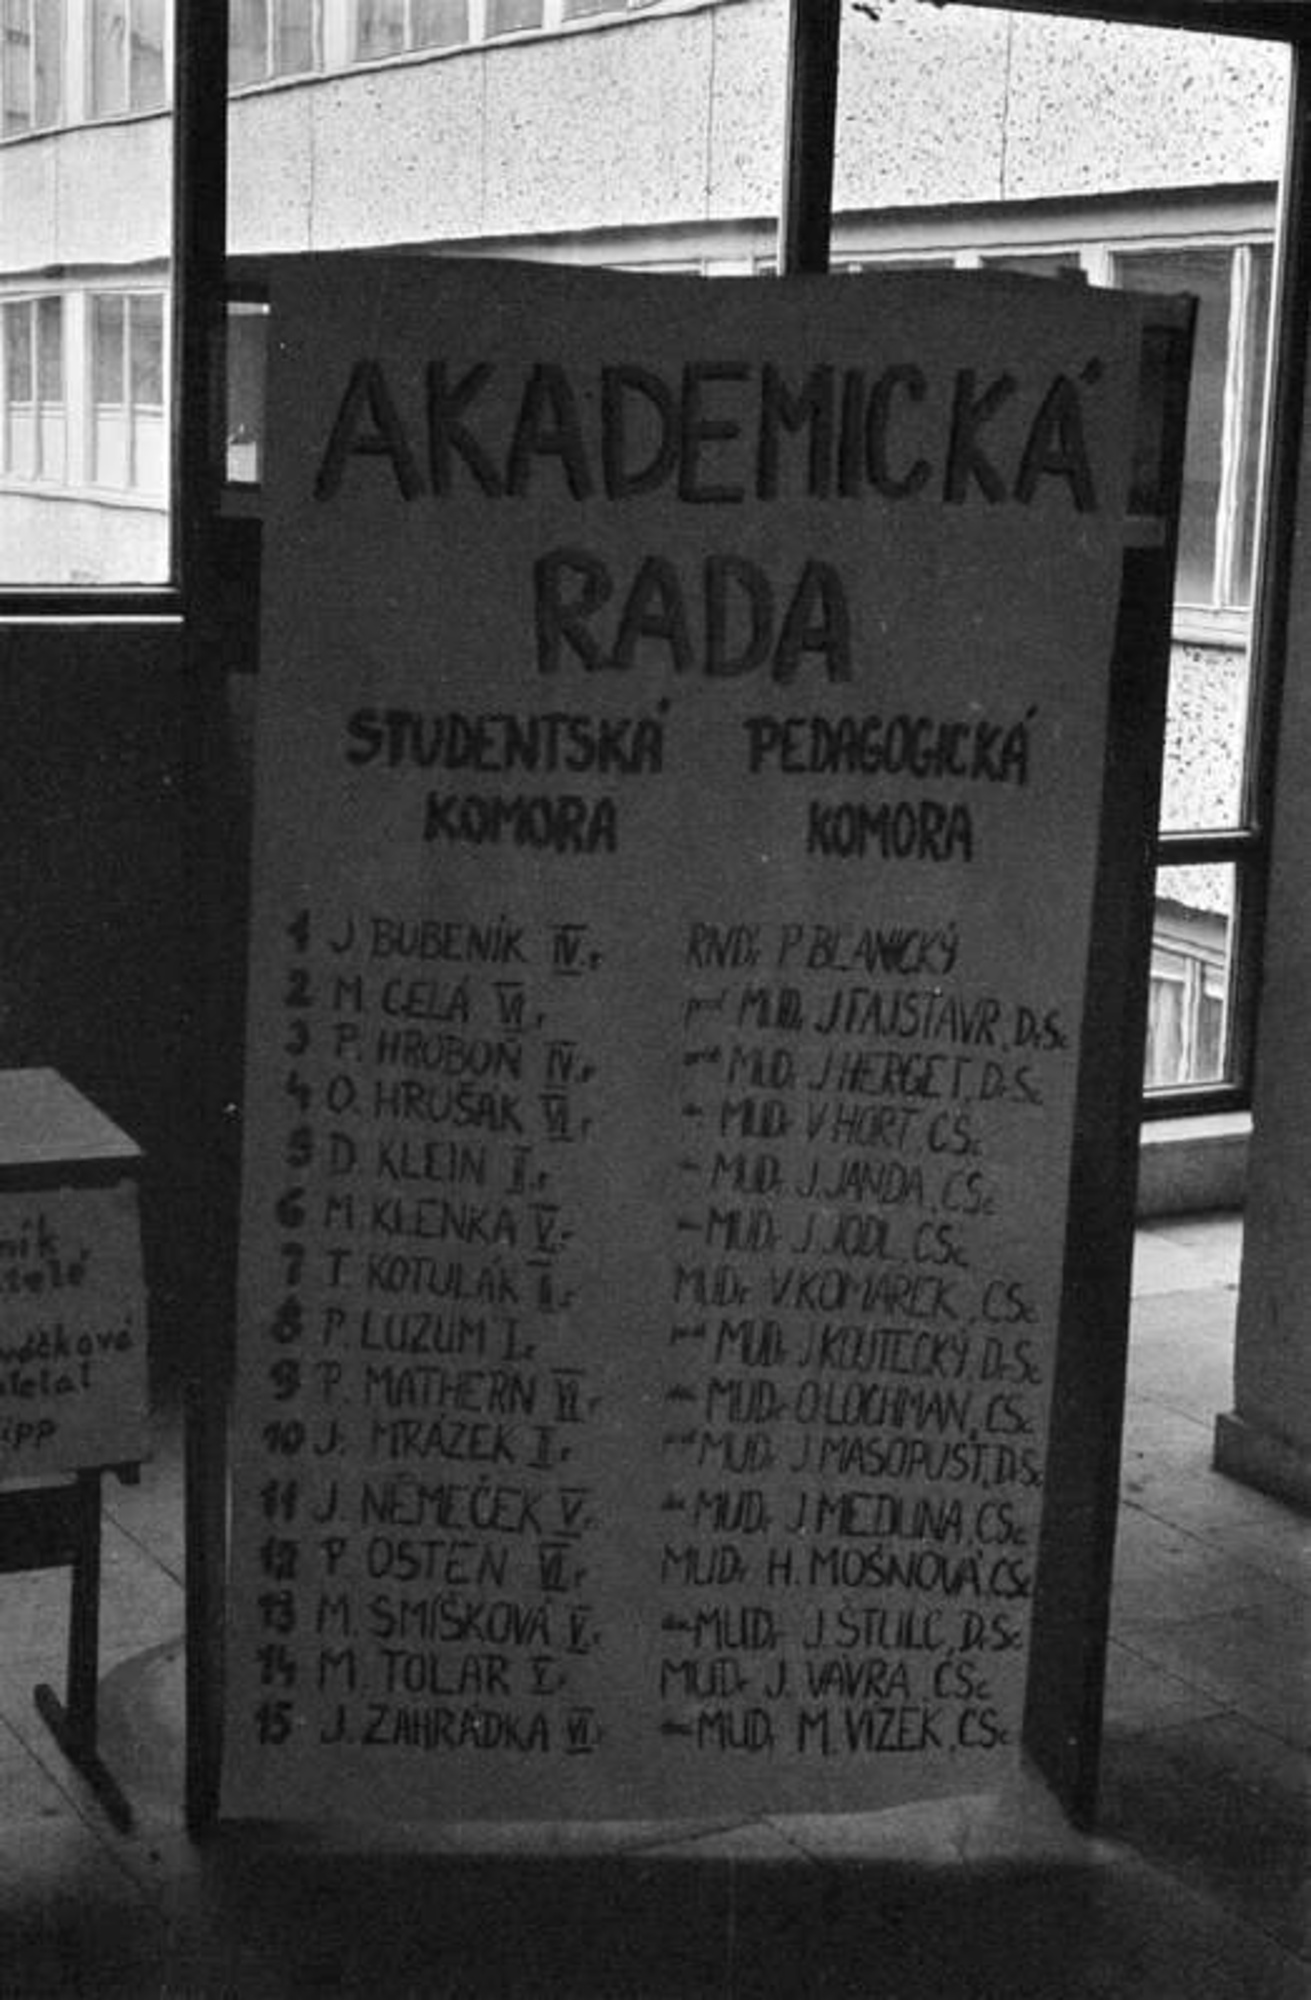 AKADEMICKÁ
RADA
STUDENTSKÁ PEDAGOGICKÁ
KOMORA KOMORA
1 J BUBENÍK IV.r RNDr P BLANICKÝ
2 M. CELÁ VI.r prof MUDr J FAJSTAVR, DrSc
3 P. HROBOŇ IV.r prof MUDr J HERGET, DrSc
4 O. HRUŠÁK VI.r MUDr V HORT, CSc
5 D. KLEIN II.r MUDr J. JANDA, CSc
6 M. KLENKA V.r MUDr J. JODL, CSc
7 T. KOTULÁK II.r MUDr V. KOMÁREK, CSc
8 P. LUZUM I.r prof MUDr J KOUTECKÝ, DrSc
9 P. MATHERN VI.r doc MUDr O LOCHMAN, CSc
10 J. MRÁZEK I.r prof MUDr J MASOPUST, DrSc
11 J. NĚMEČEK V.r doc MUDr J MEDLINA, CSc
12 P OSTEN VI.r MUDr H. MOŠNOVÁ, CSc
13 M. SMÍŠKOVÁ V.r doc MUDr J. ŠTULC, DrSc
14 M. TOLAR V.r MUDr J. VÁVRA, CSc
15 J. ZAHRÁDKA VI.r doc MUDr M. VÍZEK, CSc